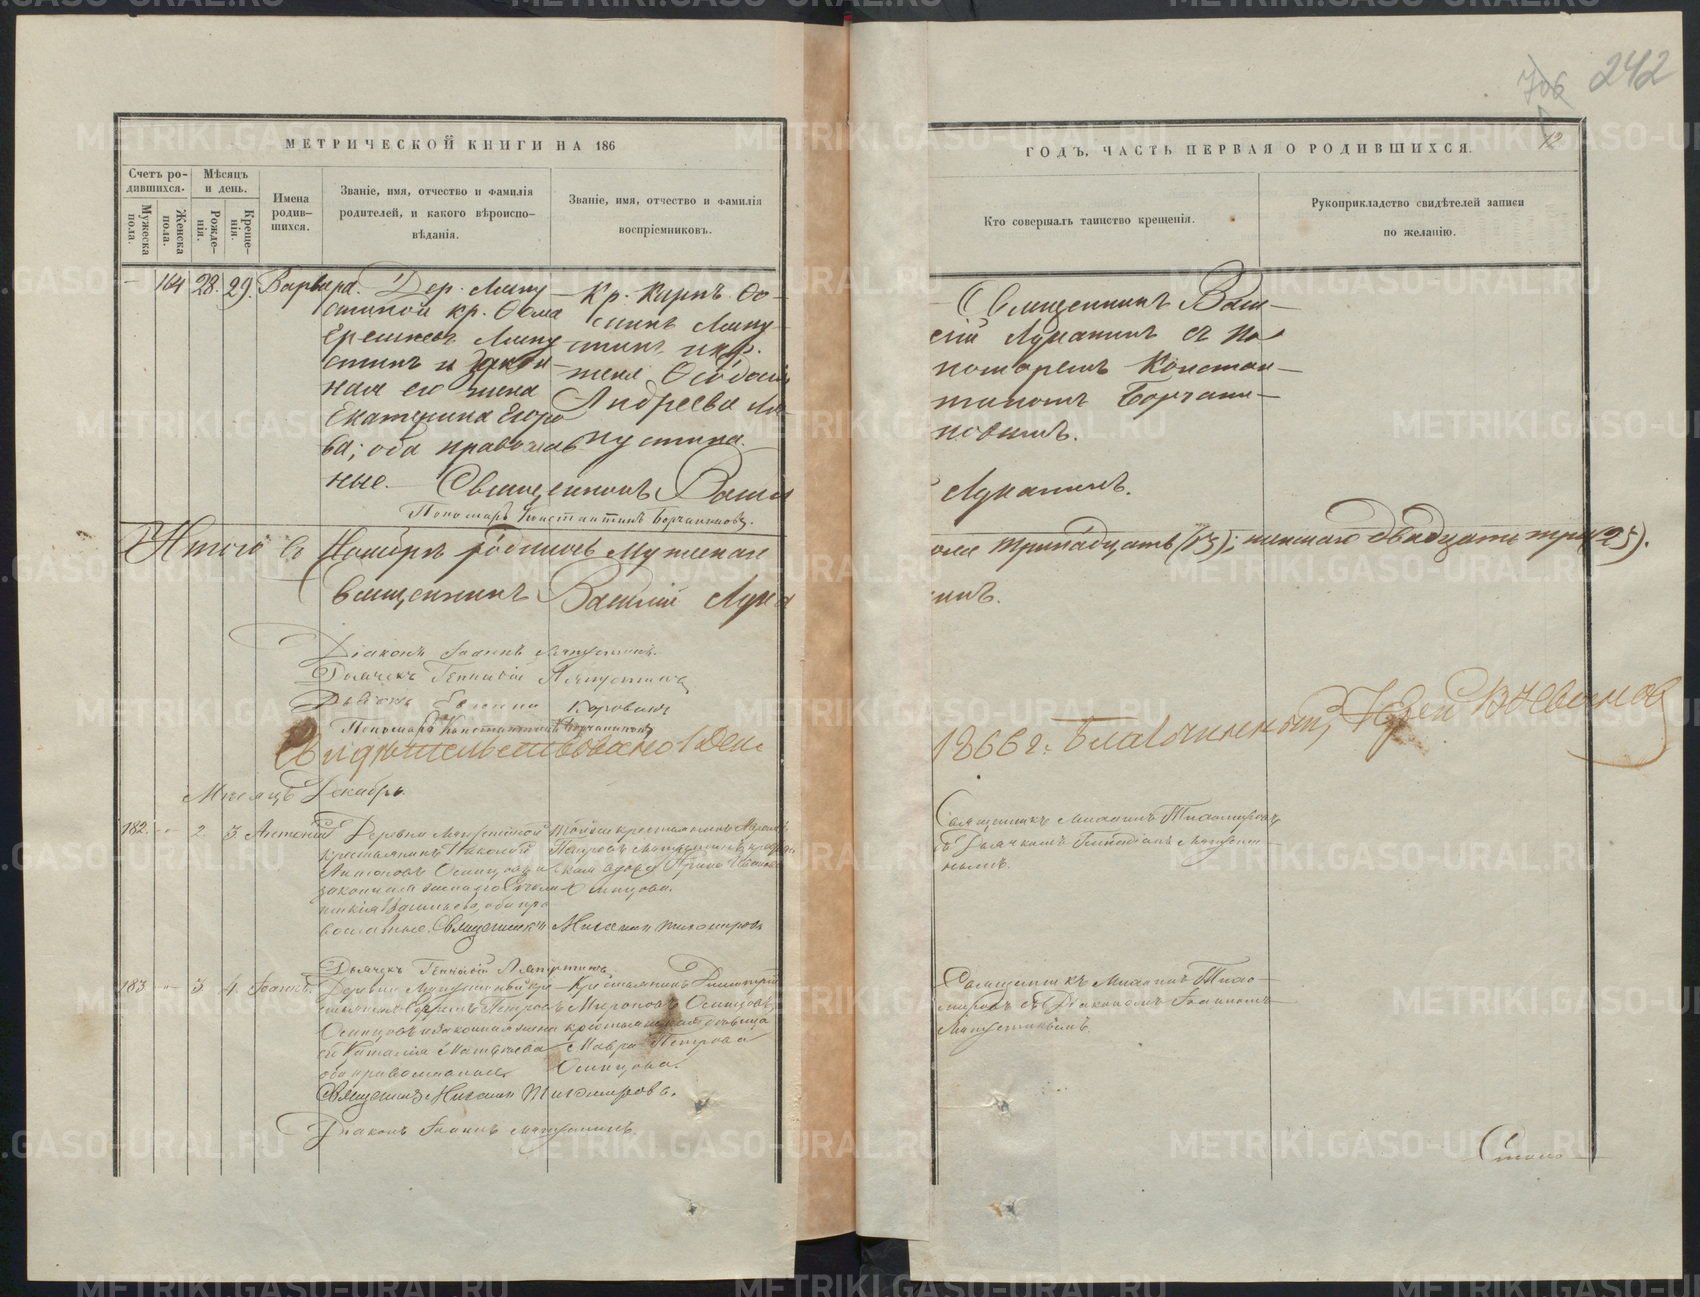 242
706
12
МЕТРИЧЕСКОЙ КНИГИ НА 186
ГОДЪ, ЧАСТЬ ПЕРВАЯ О РОДИВШИХСЯ.
Счетъ ро-
дившихся.
Мужеска
пола.
Женска
пола.
Мѣсяцъ
и день.
Рожде-
нія.
Креще-
нія.
Имена
родив-
шихся.
Званіе, имя, отчество и фамилія
родителей, и какого вѣроиспо-
вѣданія.
Званіе, имя, отчество и фамилія
воспріемниковъ.
Кто совершалъ таинство крещенія.
Рукоприкладство свидѣтелей записи
по желанію.
164 28. 29. Варвара.
Дер. Ляпу-
стиной кр. Ѳома
Ляпу-
стинъ и закон-
ная его жена
Екатерина Егоро-
ва; оба православ-
ные.
Кр. Карпъ
Ляпу-
стинъ и кр.
жена Ѳеодосія
Андреева Ля-
пустина.
Священникъ Васи-
лій Лукань съ по-
номаремъ Констан-
тиномъ Борчани-
новымъ.
Священникъ Васи
Пономарь Константинъ Борчаниновъ.
Итого въ Ноябрѣ родилось мужескаго
пола тринадцать (13); женскаго двадцать три (23).
Священникъ Василій Лука
Діаконъ Іоаннъ Ляпустинъ.
Дьячекъ Геннадій Ляпустинъ
Дьячекъ Евгеній Коровинъ
Пономарь Константинъ Борчаниновъ
Свидѣтельствовано 1 Дек.
1866 г. Благочинный, Іерей В Ивановъ
Мѣсяцъ Декабрь.
182. 2. 3. Антоній
Деревни Ляпустиной
крестьянинъ Николай
Антоновъ Осинцовъ и
законная жена его
Васильева, оба пра
вославные. Священникъ Михаилъ Тихомировъ
Тойже крестьянинъ
Петровъ
вдова Ирина Иванова
Осинцова.
Священникъ Михаилъ Тихомировъ
съ Дьячкомъ Геннадіемъ Ляпусти-
нымъ.
Дьячекъ Геннадій Ляпустинъ.
183 3 4 Іоаннъ.
Деревни Ляпустиной кре-
стьянинъ Петровъ
Осинцовъ и законная жена
его Наталія Матвѣева
оба православные.
Крестьянинъ Димитрій
Мироновъ Осинцовъ
крестьянская дѣвица
Мавра Петрова
Осинцова.
Священникъ Михаилъ Тихо-
мировъ съ Діакономъ Іоанномъ
Ляпустинымъ.
Священникъ Михаилъ Тихомировъ.
Діаконъ Іоаннъ Ляпустинъ.
METRIKI.GASO-URAL.RU